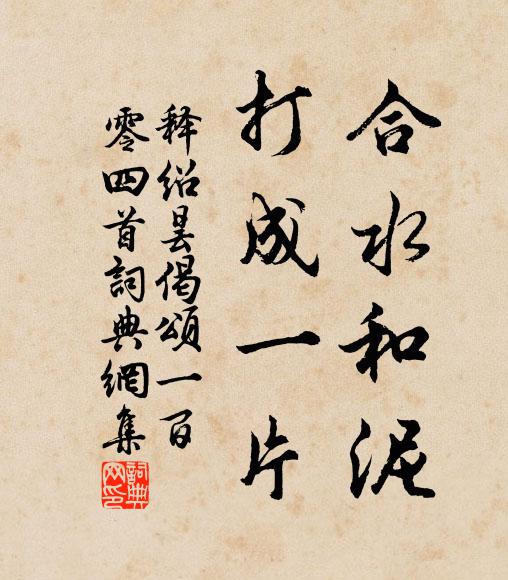 合水和泥
打成一片
释绍昙偈頌一百
零四首詞典網集
詞典
网印